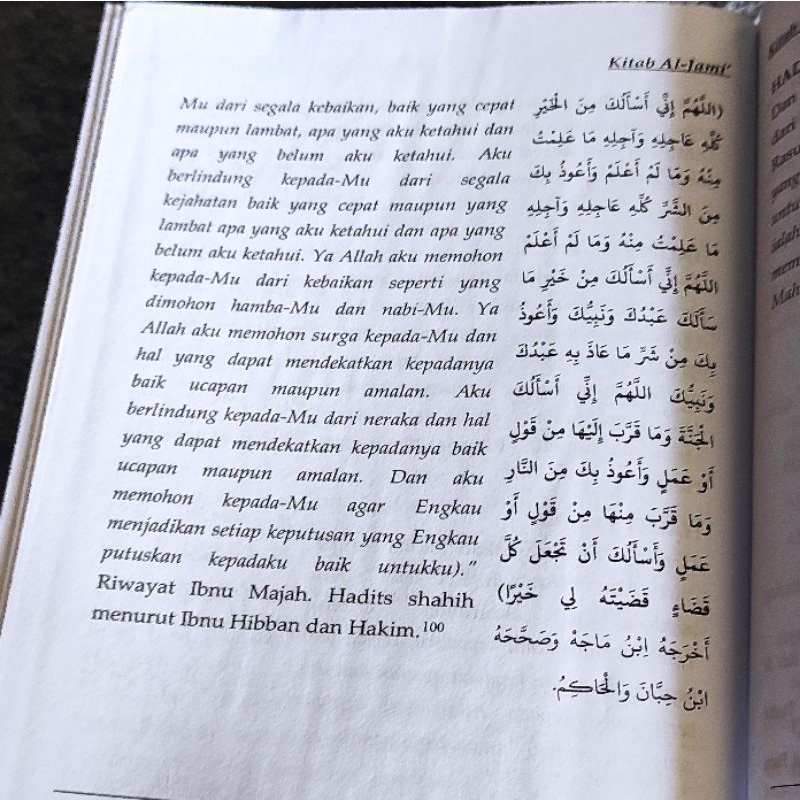 Kitab Al-Jami'
Mu dari segala kebaikan, baik yang cepat
maupun lambat, apa yang aku ketahui dan
apa yang belum aku ketahui. Aku
berlindung kepada-Mu dari segala
kejahatan baik yang cepat maupun yang
lambat apa yang aku ketahui dan apa yang
belum aku ketahui. Ya Allah aku memohon
kepada-Mu dari kebaikan seperti yang
dimohon hamba-Mu dan nabi-Mu. Ya
Allah aku memohon surga kepada-Mu dan
hal yang dapat mendekatkan kepadanya
baik ucapan maupun amalan. Aku
berlindung kepada-Mu dari neraka dan hal
yang dapat mendekatkan kepadanya baik
ucapan maupun amalan. Dan aku
memohon kepada-Mu agar Engkau
menjadikan setiap keputusan yang Engkau
putuskan kepadaku baik untukku)."
Riwayat Ibnu Majah. Hadits shahih
menurut Ibnu Hibban dan Hakim.100
(اللَّهُمَّ إِنِّي أَسْأَلُكَ مِنَ الْخَيْرِ
كُلِّهِ عَاجِلِهِ وَآجِلِهِ مَا عَلِمْتُ
مِنْهُ وَمَا لَمْ أَعْلَمْ وَأَعُوذُ بِكَ
مِنَ الشَّرِّ كُلِّهِ عَاجِلِهِ وَآجِلِهِ
مَا عَلِمْتُ مِنْهُ وَمَا لَمْ أَعْلَمْ
اللَّهُمَّ إِنِّي أَسْأَلُكَ مِنْ خَيْرِ مَا
سَأَلَكَ عَبْدُكَ وَنَبِيُّكَ وَأَعُوذُ
بِكَ مِنْ شَرِّ مَا عَاذَ بِهِ عَبْدُكَ
وَنَبِيُّكَ اللَّهُمَّ إِنِّي أَسْأَلُكَ
الْجَنَّةَ وَمَا قَرَّبَ إِلَيْهَا مِنْ قَوْلٍ
أَوْ عَمَلٍ وَأَعُوذُ بِكَ مِنَ النَّارِ
وَمَا قَرَّبَ مِنْهَا مِنْ قَوْلٍ أَوْ
عَمَلٍ وَأَسْأَلُكَ أَنْ تَجْعَلَ كُلَّ
قَضَاءٍ قَضَيْتَهُ لِي خَيْرًا)
أَخْرَجَهُ اِبْنُ مَاجَهْ وَصَحَّحَهُ
ابْنُ حِبَّانَ وَالْحَاكِمُ.